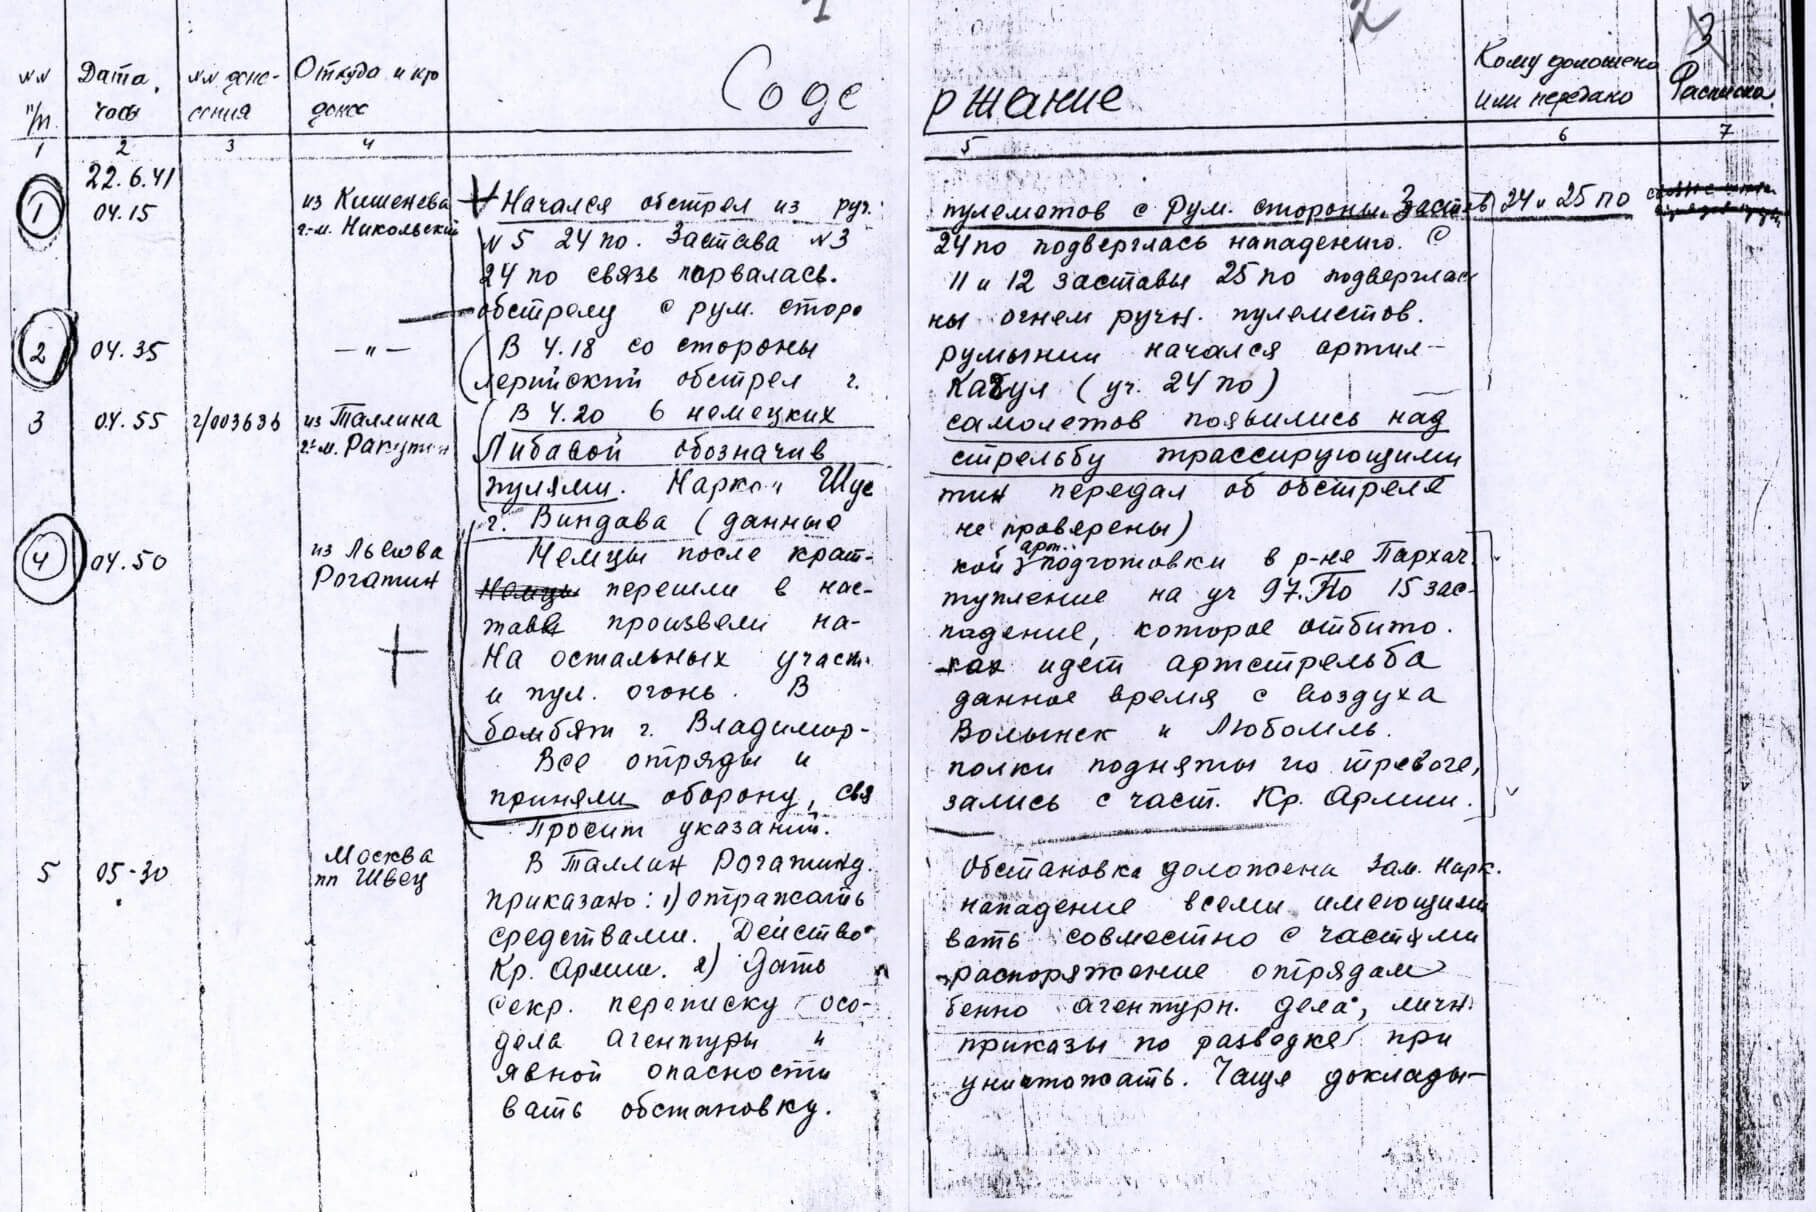 1 2 3
№№ п/п. Дата, часы №№ доне-сения Откуда и кто донес Соде ржание Кому доложено или передано Расписка
1 2 3 4 5 6 7
22.6.41
1 04.15 из Кишенева г.-м. Никольский
Начался обстрел из руч. пулеметов с Рум. стороны. Застав 24 и 25 по
№5 24 по. Застава №3 24 по подверглась нападению. С
24 по связь порвалась. 11 и 12 заставы 25 по подверглас
обстрелу с рум. сторо ны огнем ручн. пулеметов.
2 04.35 — " — В 4.18 со стороны румынии начался артил-
лерийский обстрел г. Кагул (уч. 24 по)
3 04.55 г/003636 из Таллина г-м. Ракутин
В 4.20 6 немецких самолетов появились над
Либавой обозначив стрельбу трассирующими
пулями. Нарком Шус тин передал об обстреле
г. Виндава (данные не проверены)
4 04.50 из Львова Рогатин
Немцы после крат- кой арт. подготовки в р-не Пархач.
Немцы перешли в нас- тупление на уч 97. По 15 зас-
тава произвели на- падение, которое отбито.
На остальных участ ках идет артстрельба
и пул. огонь. В данное время с воздуха
бомбят г. Владимир- Волынск и Любомль.
Все отряды и полки подняты по тревоге,
приняли оборону, свя зались с част. Кр. Армии.
Просит указаний.
5 05-30 Москва пп Швец
В Таллин Рогатину. Обстановка доложена Зам. Нарк.
приказано: 1) отражать нападение всеми имеющими
средствами. Действо вать совместно с частями
Кр. Армии. 2) Дать распоряжение отрядам
Секр. переписку (осо- бенно агентурн. дела, личн.
дела агентуры и приказы по разведке) при
явной опасности уничтожать. Чаще доклады-
вать обстановку.